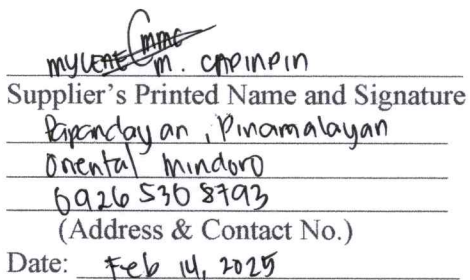 MYLENE M. CAPINPIN
Supplier's Printed Name and Signature
Papandayan, Pinamalayan
Oriental Mindoro
0926 530 8793
(Address & Contact No.)
Date: Feb 14, 2025